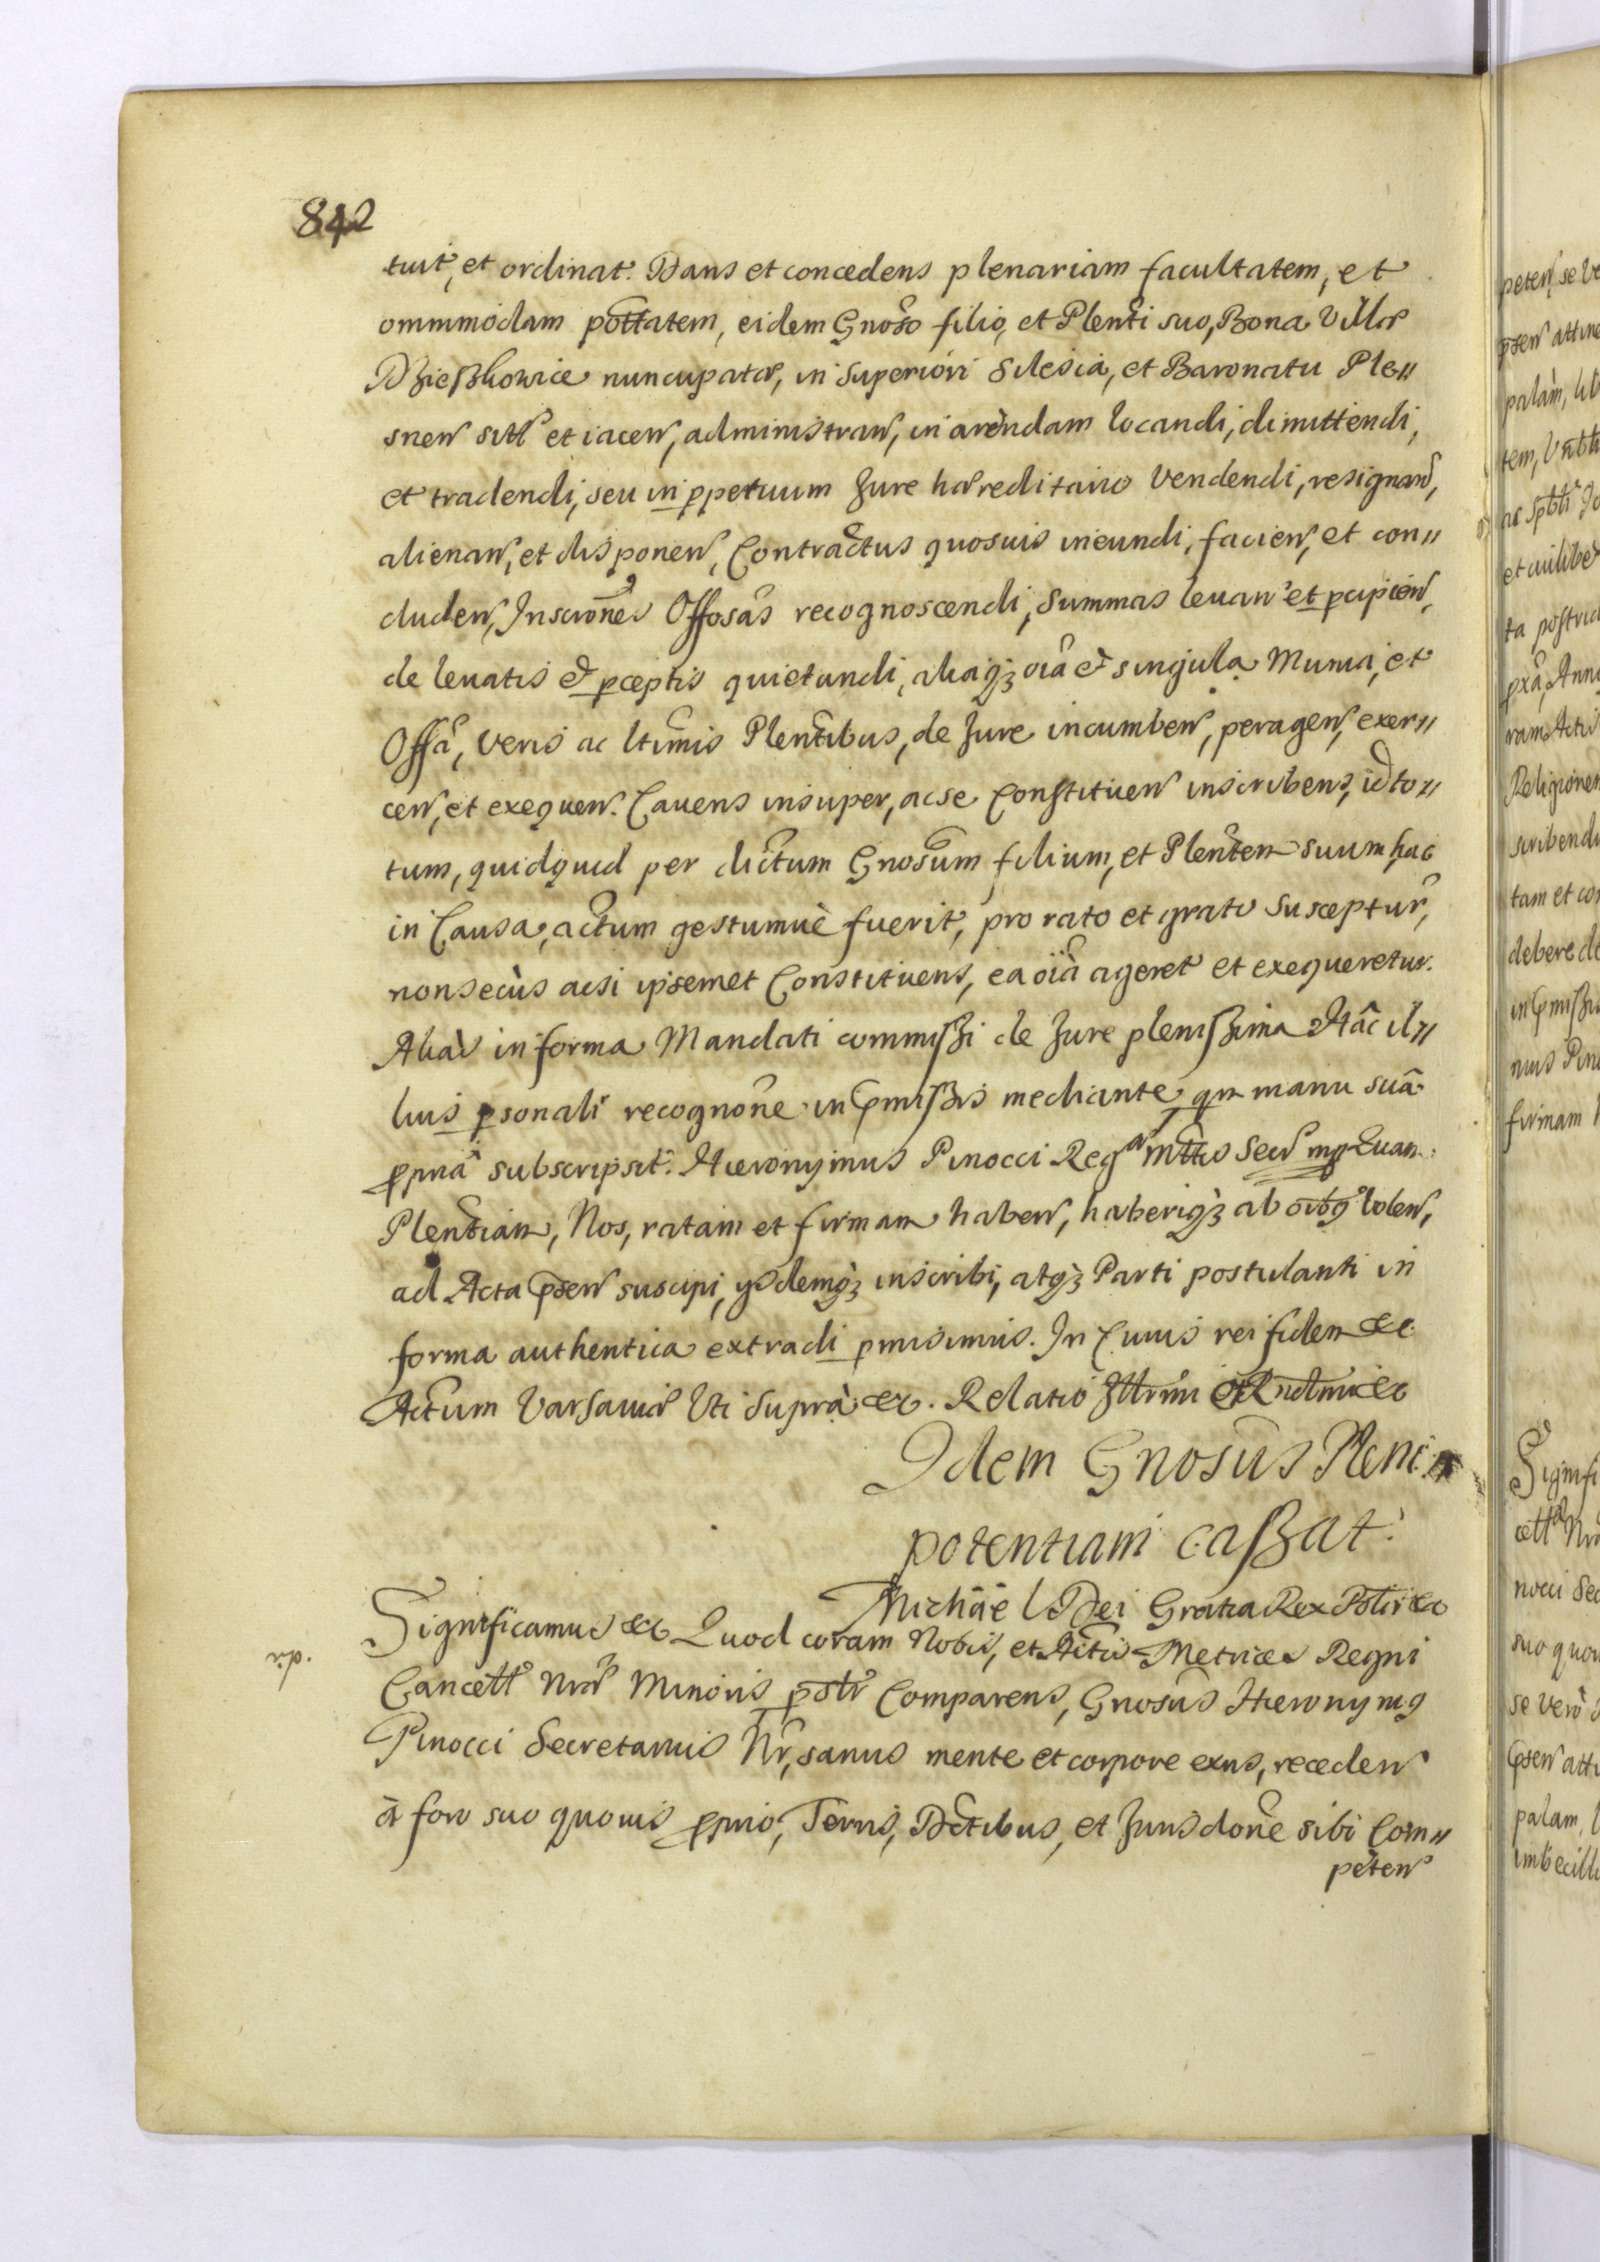 842
tuit, et ordinat. Dans et concedens plenariam facultatem, et
omnimodam pottatem, eidem Gnoso filio, et Plenti suo, Bona Villæ
Dzieszkowice nuncupatæ, in Superiori Silesia, et Baronatu Ple//
snen sitt et iacen, administran, in arendam locandi, dimittendi,
et tradendi, seu in ppetuum Jure hæreditario Vendendi, resignan,
alienan, et disponen, Contractus quosuis ineundi, facien, et con//
cluden, Inscrõnes Offosas recognoscendi, Summas leuan et pcipien,
de leuatis & pceptis quietandi, aliaqз oia & singula Munia, et
Offa, veris ac ltimis Plentibus, de Jure incumben, peragen, exer//
cen, et exequen. Cauens insuper, ac se Constituen inscribens, id to//
tum, quidquid per dictum Gnosum filium, et Plentem suum hac
in Causa, actum gestumuè fuerit, pro rato et grato susceptur,
non secùs acsi ipsemet Constituens, ea oia ageret et exequeretur.
Aliàs in forma Mandati commiszi de Jure pleniszima. Hâc il//
lius psonali recognõne in pmiszis mediante, qm manu suâ
ppria subscripsit. Hieronymus Pinocci Regæ Mttis Secr mp Quam
Plentiam, Nos, ratam et firmam haben, haberiqз ab oibq volen,
ad Acta psen suscipi, ysdemqз inscribi, atqз Parti postulanti in
forma authentica extradi pmisimus. In Cuius rei fidem &c
Actum Varsauiæ Vti Suprà &c. Relatio Jllrmi et Rndmi &c
Idem Gnosus Pleni
potentiam caszat.
Michäel Dei Gratia Rex Polir &c
Significamus &c Quod coram Nobis, et Actis Metrices Regni
Cancett Nræ Minoris pstr Comparens, Gnosus Hieronymq
Pinocci Secretarius Nr, sanus mente et corpore exns, receden
à foro suo quouis pprio, Terris, Dctibus, et Jurisdone sibi Com//
peten